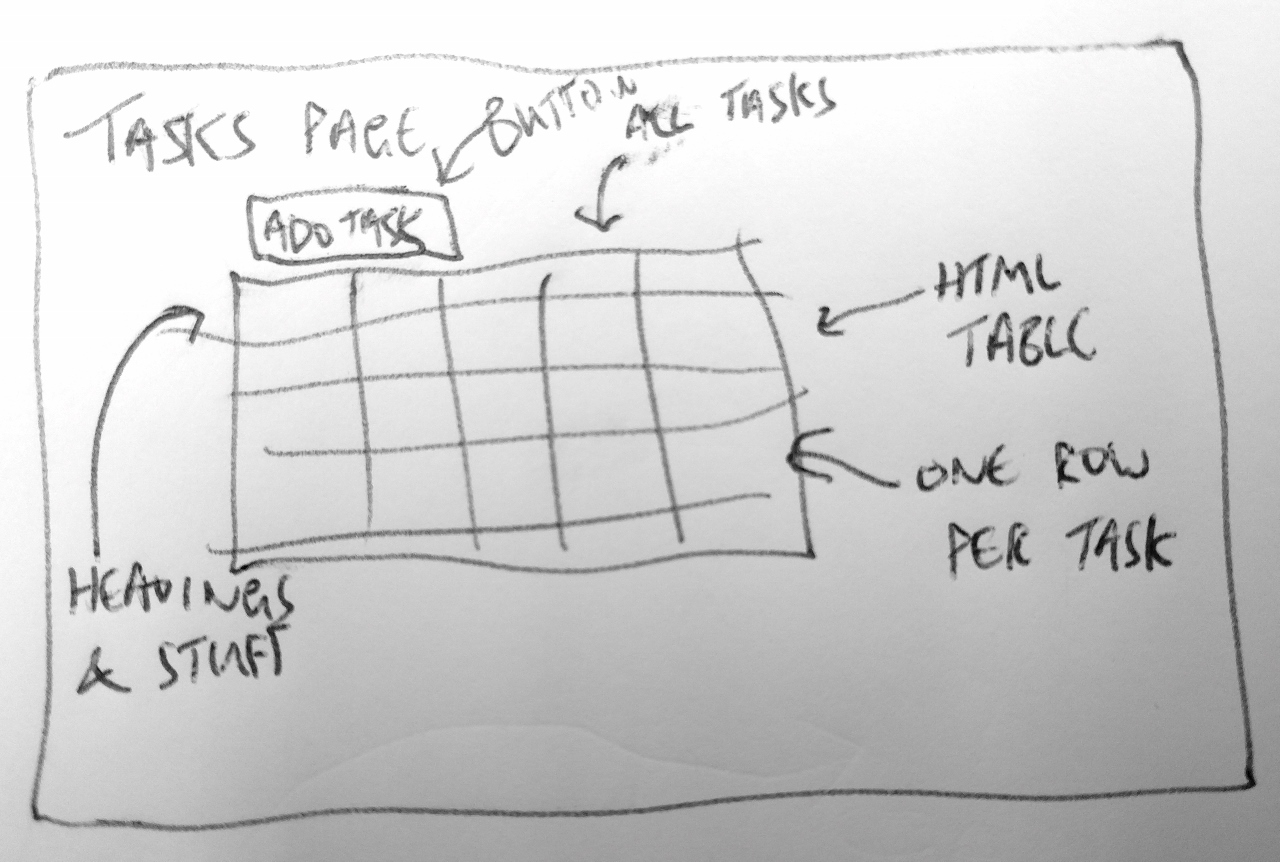 TASKS PAGE
BUTTON
ALL TASKS
ADD TASK
HTML
TABLE
ONE ROW
PER TASK
HEADINGS
& STUFF